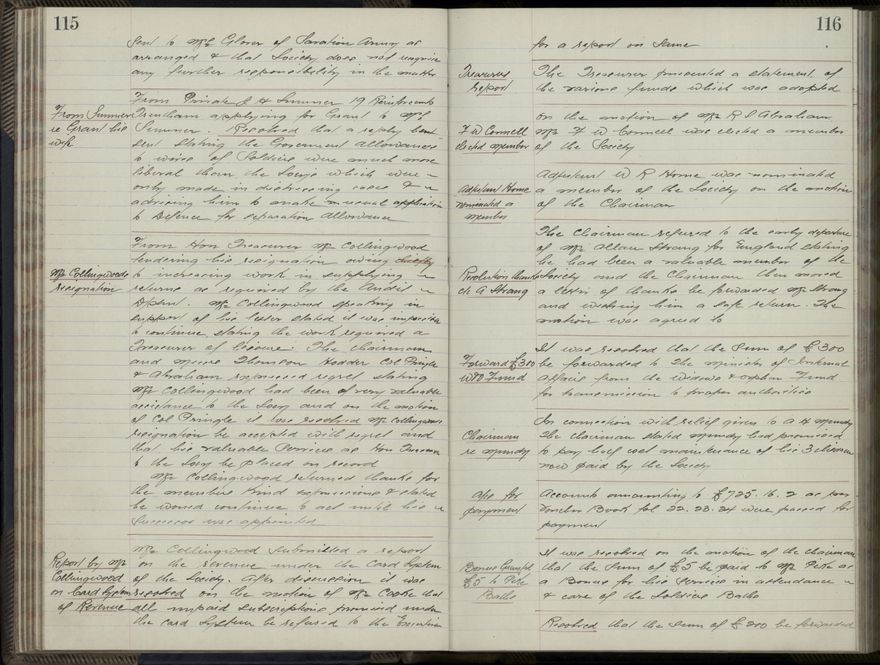 115
sent to Mrs Glover of Salvation Army as
arranged & that Society does not recognise
any further responsibility in the matter
From Summers
re Grant his
wife
From Private J H Summer 19 Reinforcements
Trentham applying for Grant to Mrs
Summer. Resolved that a reply be
sent stating the Goverment allowances
to wives of Soldiers were much more
liberal than the Socys which were
only made in distressing cases &
advising him to make usual application
to Defence for separation allowance
Mr Collingwoods
resignation
From Hon Treasurer Mr Collingwood
tendering his resignation owing chiefly
to increasing work in supplying
returns as required by the Audit
Dptm. Mr Collingwood speaking in
support of his letter stated it was impossible
to continue stating the work required a
Treasurer of leisure. The Chairman
and Messrs Thomson Hodder Col Pringle
& Abraham expressed regret stating
Mr Collingwood had been of very valuable
assistance to the Socy and on the motion
of Col Pringle it was resolved Mr Collingwoods
resignation be accepted with regret and
that his valuable Services as Hon Treasurer
to the Socy be placed on record
Mr Collingwood returned thanks for
the members kind expressions & stated
he would continue to act until his
Successor was appointed
Report by Mr
Collingwood
on Card System
of Revenue
Mr Collingwood submitted a report
on the revenue under the Card System
of the Society. After discussion it was
resolved on the motion of Mr Cooke that
all unpaid subscriptions promised under
the card System be referred to the Executive
116
for a report on same
Treasurers
report
The Treasurer presented a statement of
the various funds which was adopted
F W Connell
elected member
On the motion of Mr R S Abraham
Mr F W Connell was elected a member
of the Society
Adjutant Home
nominated a
member
Adjutant W R Home was nominated
a member of the Society on the motion
of the Chairman
Resolution thanks
to A Strang
The Chairman referred to the early departure
of Mr Allan Strang for England stating
he had been a valuable member of the
Society and the Chairman then moved
a letter of thanks be forwarded Mr Strang
and wishing him a safe return. The
motion was agreed to
Forward £300
W&O Fund
It was resolved that the Sum of £300
be forwarded to the Minister of Internal
Affairs from the Widows & Orphan Fund
for transmission to proper authorities
Chairman
re Mundy
In connection with relief given to A H Mundy
the Chairman stated Mundy had promised
to pay half cost maintenance of his 3 children
now paid by the Society
a/cs for
payment
Accounts amounting to £725. 16. 2 as per
Voucher Book fol 22. 23. 24 were passed for
payment
Bonus Granted
£5 to
Baths
It was resolved on the motion of the Chairman
that the Sum of £5 be paid to Mr
as a Bonus for his Services in attendance
& care of the Soldiers Baths
Resolved that the sum of £200 be forwarded